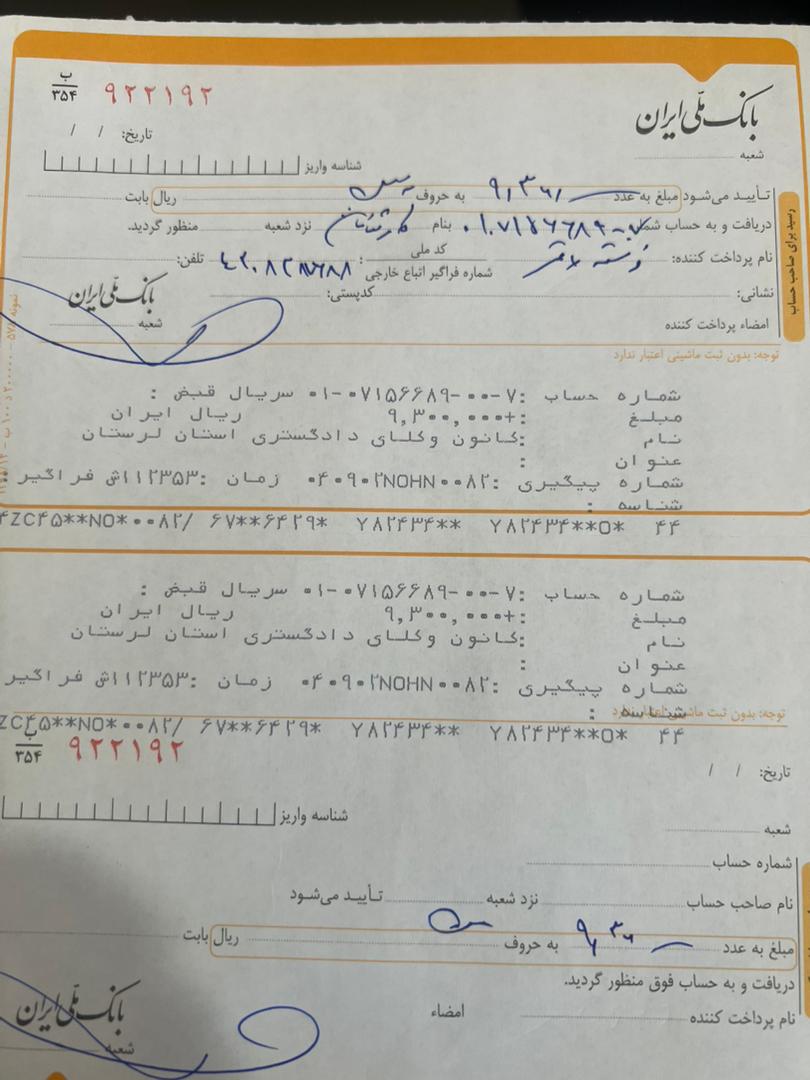 بانک ملّی ایران
ب
۳۵۴
۹۲۲۱۹۲
شعبه
تاریخ: / /
شناسه واریز
تأیید می‌شود مبلغ به عدد به حروف ریال بابت
دریافت و به حساب شماره بنام نزد شعبه منظور گردید.
نام پرداخت کننده: فرشته کد ملی
شماره فراگیر اتباع خارجی : تلفن:
نشانی: کدپستی:
امضاء پرداخت کننده
بانک ملّی ایران
شعبه
رسید برای صاحب حساب
توجه: بدون ثبت ماشینی اعتبار ندارد
شماره حساب :۷-۰۰-۰۱-۰۷۱۵۶۶۸۹ سریال قبض :
مبلغ :+۹,۳۰۰,۰۰۰ ریال ایران
نام :کانون وکلای دادگستری استان لرستان
عنوان :
شماره پیگیری :۰۴۰۹۰۲NOHN۰۰۸۲ زمان :۱۱۲۳۵۳ش فراگیر :
شناسه :
ZC۴۵**NO*۰۰۸۲/ ۶۷**۶۴۲۹* Y۸۲۴۳۴** Y۸۲۴۳۴**O* ۴۴
شماره حساب :۷-۰۰-۰۱-۰۷۱۵۶۶۸۹ سریال قبض :
مبلغ :+۹,۳۰۰,۰۰۰ ریال ایران
نام :کانون وکلای دادگستری استان لرستان
عنوان :
شماره پیگیری :۰۴۰۹۰۲NOHN۰۰۸۲ زمان :۱۱۲۳۵۳ش فراگیر
شناسه :
توجه: بدون ثبت ماشینی اعتبار ندارد
ZC۴۵**NO*۰۰۸۲/ ۶۷**۶۴۲۹* Y۸۲۴۳۴** Y۸۲۴۳۴**O* ۴۴
ب
۳۵۴
۹۲۲۱۹۲
تاریخ: / /
شناسه واریز
شعبه
شماره حساب
نام صاحب حساب نزد شعبه تأیید می‌شود
مبلغ به عدد به حروف ریال بابت
دریافت و به حساب فوق منظور گردید.
نام پرداخت کننده امضاء
بانک ملّی ایران
شعبه